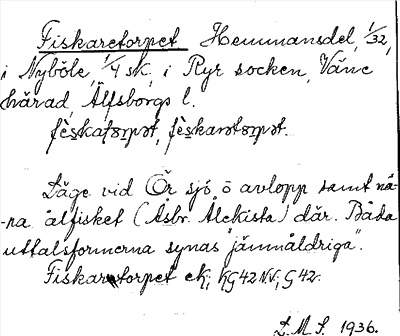 Fiskaretorpet Hemmansdel, 1/32,
i Nyböle, 1/4 sk, i Ryr socken, Väne
härad, Älfsborgs l.
fèskatɔrpət, fèskarətɔrpət.
Läge vid Ör sjö ö avlopp samt nä-
-ra ålfisket (Åsbr. Ålekista) där. Båda
uttalsformerna synas "jämnåldriga".
Fiskaretorpet ek; KG42 NV; G42.
L.M.S. 1936.